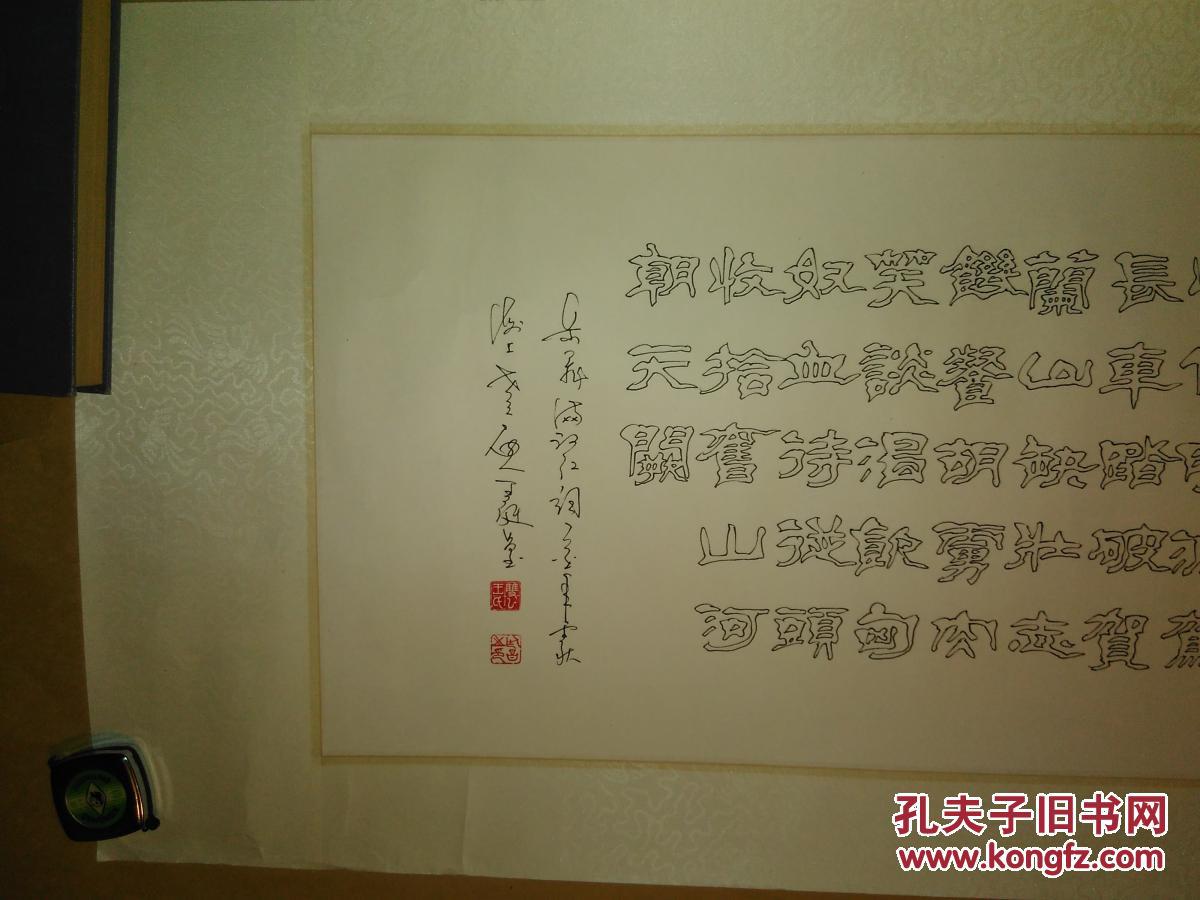 駕
長車踏破賀
蘭山缺壯志
饑餐胡虜肉
笑談渴飲匈
奴血待從頭
收拾舊山河
朝天闕
岳飛滿江紅詞
孔夫子旧书网
www.kongfz.com